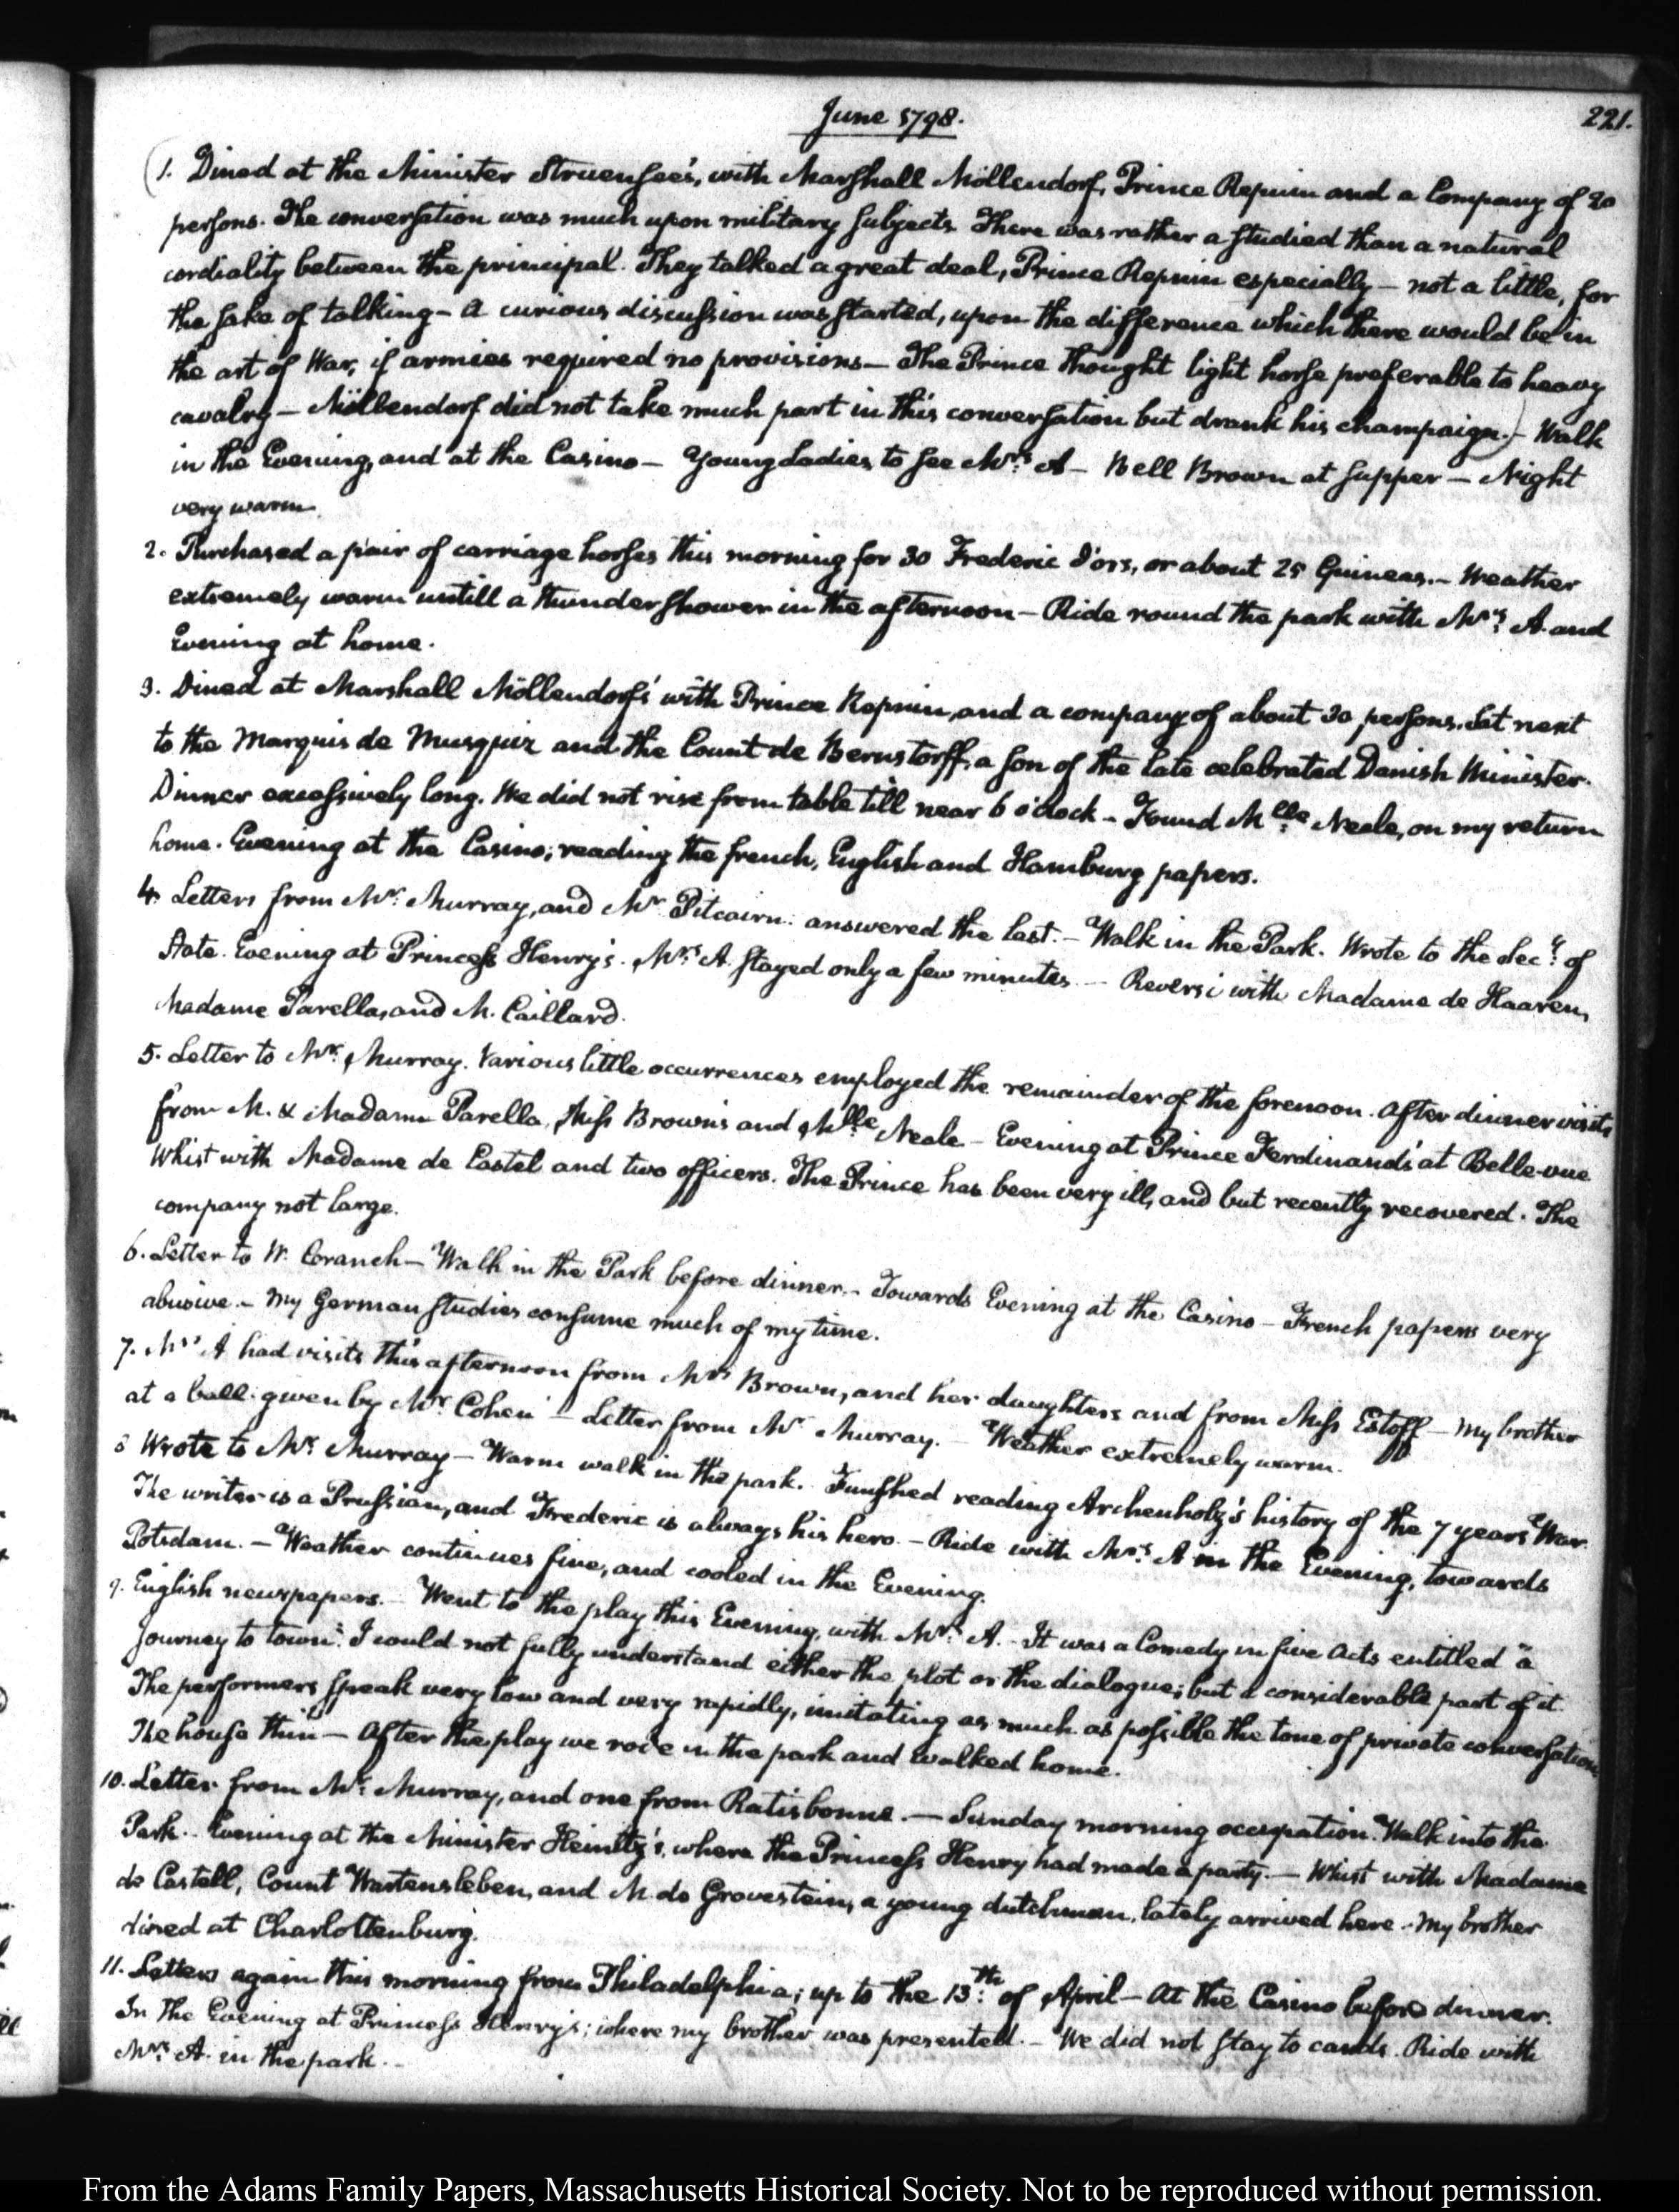 June 1798.
221.
(1. Dined at the Minister Struensee's, with Marshall Möllendorf, Prince Repnin and a Company of 20
persons. The conversation was much upon military subjects. There was rather a studied than a natural
cordiality between the principal. They talked a great deal, Prince Repnin especially — not a little, for
the sake of talking — A curious discussion was started, upon the difference which there would be in
the art of War, if armies required no provisions — The Prince thought light horse preferable to heavy
cavalry — Möllendorf did not take much part in this conversation but drank his champaign.) — Walk
in the Evening, and at the Casino — Young Ladies to see Mrs. A — Bell Brown at supper — Night
very warm.
2. Purchased a pair of carriage horses this morning for 30 Frederic d'ors, or about 25 Guineas. — Weather
extremely warm untill a thunder shower in the afternoon — Ride round the park with Mrs. A. and
Evening at home.
3. Dined at Marshall Möllendorf's with Prince Repnin, and a company of about 30 persons. Sat next
to the Marquis de Musquiz and the Count de Bernstorff, a son of the late celebrated Danish Minister.
Dinner excessively long. We did not rise from table till near 6 o'clock — Found Mlle. Neale, on my return
home. Evening at the Casino; reading the french, English and Hamburg papers.
4. Letters from Mr. Murray, and Mr. Pitcairn: answered the last. — Walk in the Park. Wrote to the Secy. of
State. Evening at Princess Henry's. Mrs. A. stayed only a few minutes — Reversi with Madame de Haaren,
Madame Parella, and M. Caillard.
5. Letter to Mr. Murray. Various little occurrences employed the remainder of the forenoon. After dinner visits
from M. & Madame Parella, Miss Browns and Mlle. Neale — Evening at Prince Ferdinand's at Belle-vue
Whist with Madame de Castel and two officers. The Prince has been very ill, and but recently recovered. The
company not large.
6. Letter to W. Cranch — Walk in the Park before dinner. — Towards Evening at the Casino — French papers very
abusive. — My German studies consume much of my time.
7. Mrs. A had visits this afternoon from Mrs. Brown, and her daughters and from Miss Estoff — My brother
at a ball given by Mr. Cohen — Letter from Mr. Murray. — Weather extremely warm.
8 Wrote to Mr. Murray — Warm walk in the park. Finished reading Archenholz's history of the 7 years War.
The writer is a Prussian, and Frederic is always his hero. — Ride with Mrs. A in the Evening, towards
Potsdam. — Weather continues fine, and cooled in the Evening.
9. English newspapers. — Went to the play this Evening, with Mrs. A. — It was a Comedy in five Acts entitled "a
Journey to town". I could not fully understand either the plot or the dialogue; but a considerable part of it.
The performers speak very low and very rapidly, imitating as much as possible the tone of private conversation
The house thin — After the play we rode in the park and walked home.
10. Letter from Mr. Murray, and one from Ratisbonne. — Sunday morning occupation. Walk into the
Park. Evening at the Minister Heinitz's, where the Princess Henry had made a party. — Whist with Madame
de Castell, Count Wartensleben, and M. de Grovestein, a young dutchman, lately arrived here. My brother
dined at Charlottenburg.
11. Letters again this morning from Philadelphia; up to the 13th. of April — At the Casino before dinner.
In the Evening at Princess Henry's; where my brother was presented. — We did not stay to cards. Ride with
Mrs. A. in the park. —
From the Adams Family Papers, Massachusetts Historical Society. Not to be reproduced without permission.